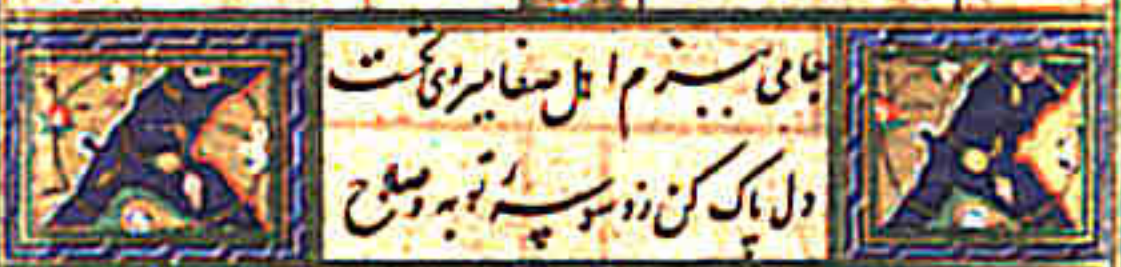 جامی ببزم اهل صفا میروی نخست
دل پاک کن ز وسوسهٔ توبه و صلاح